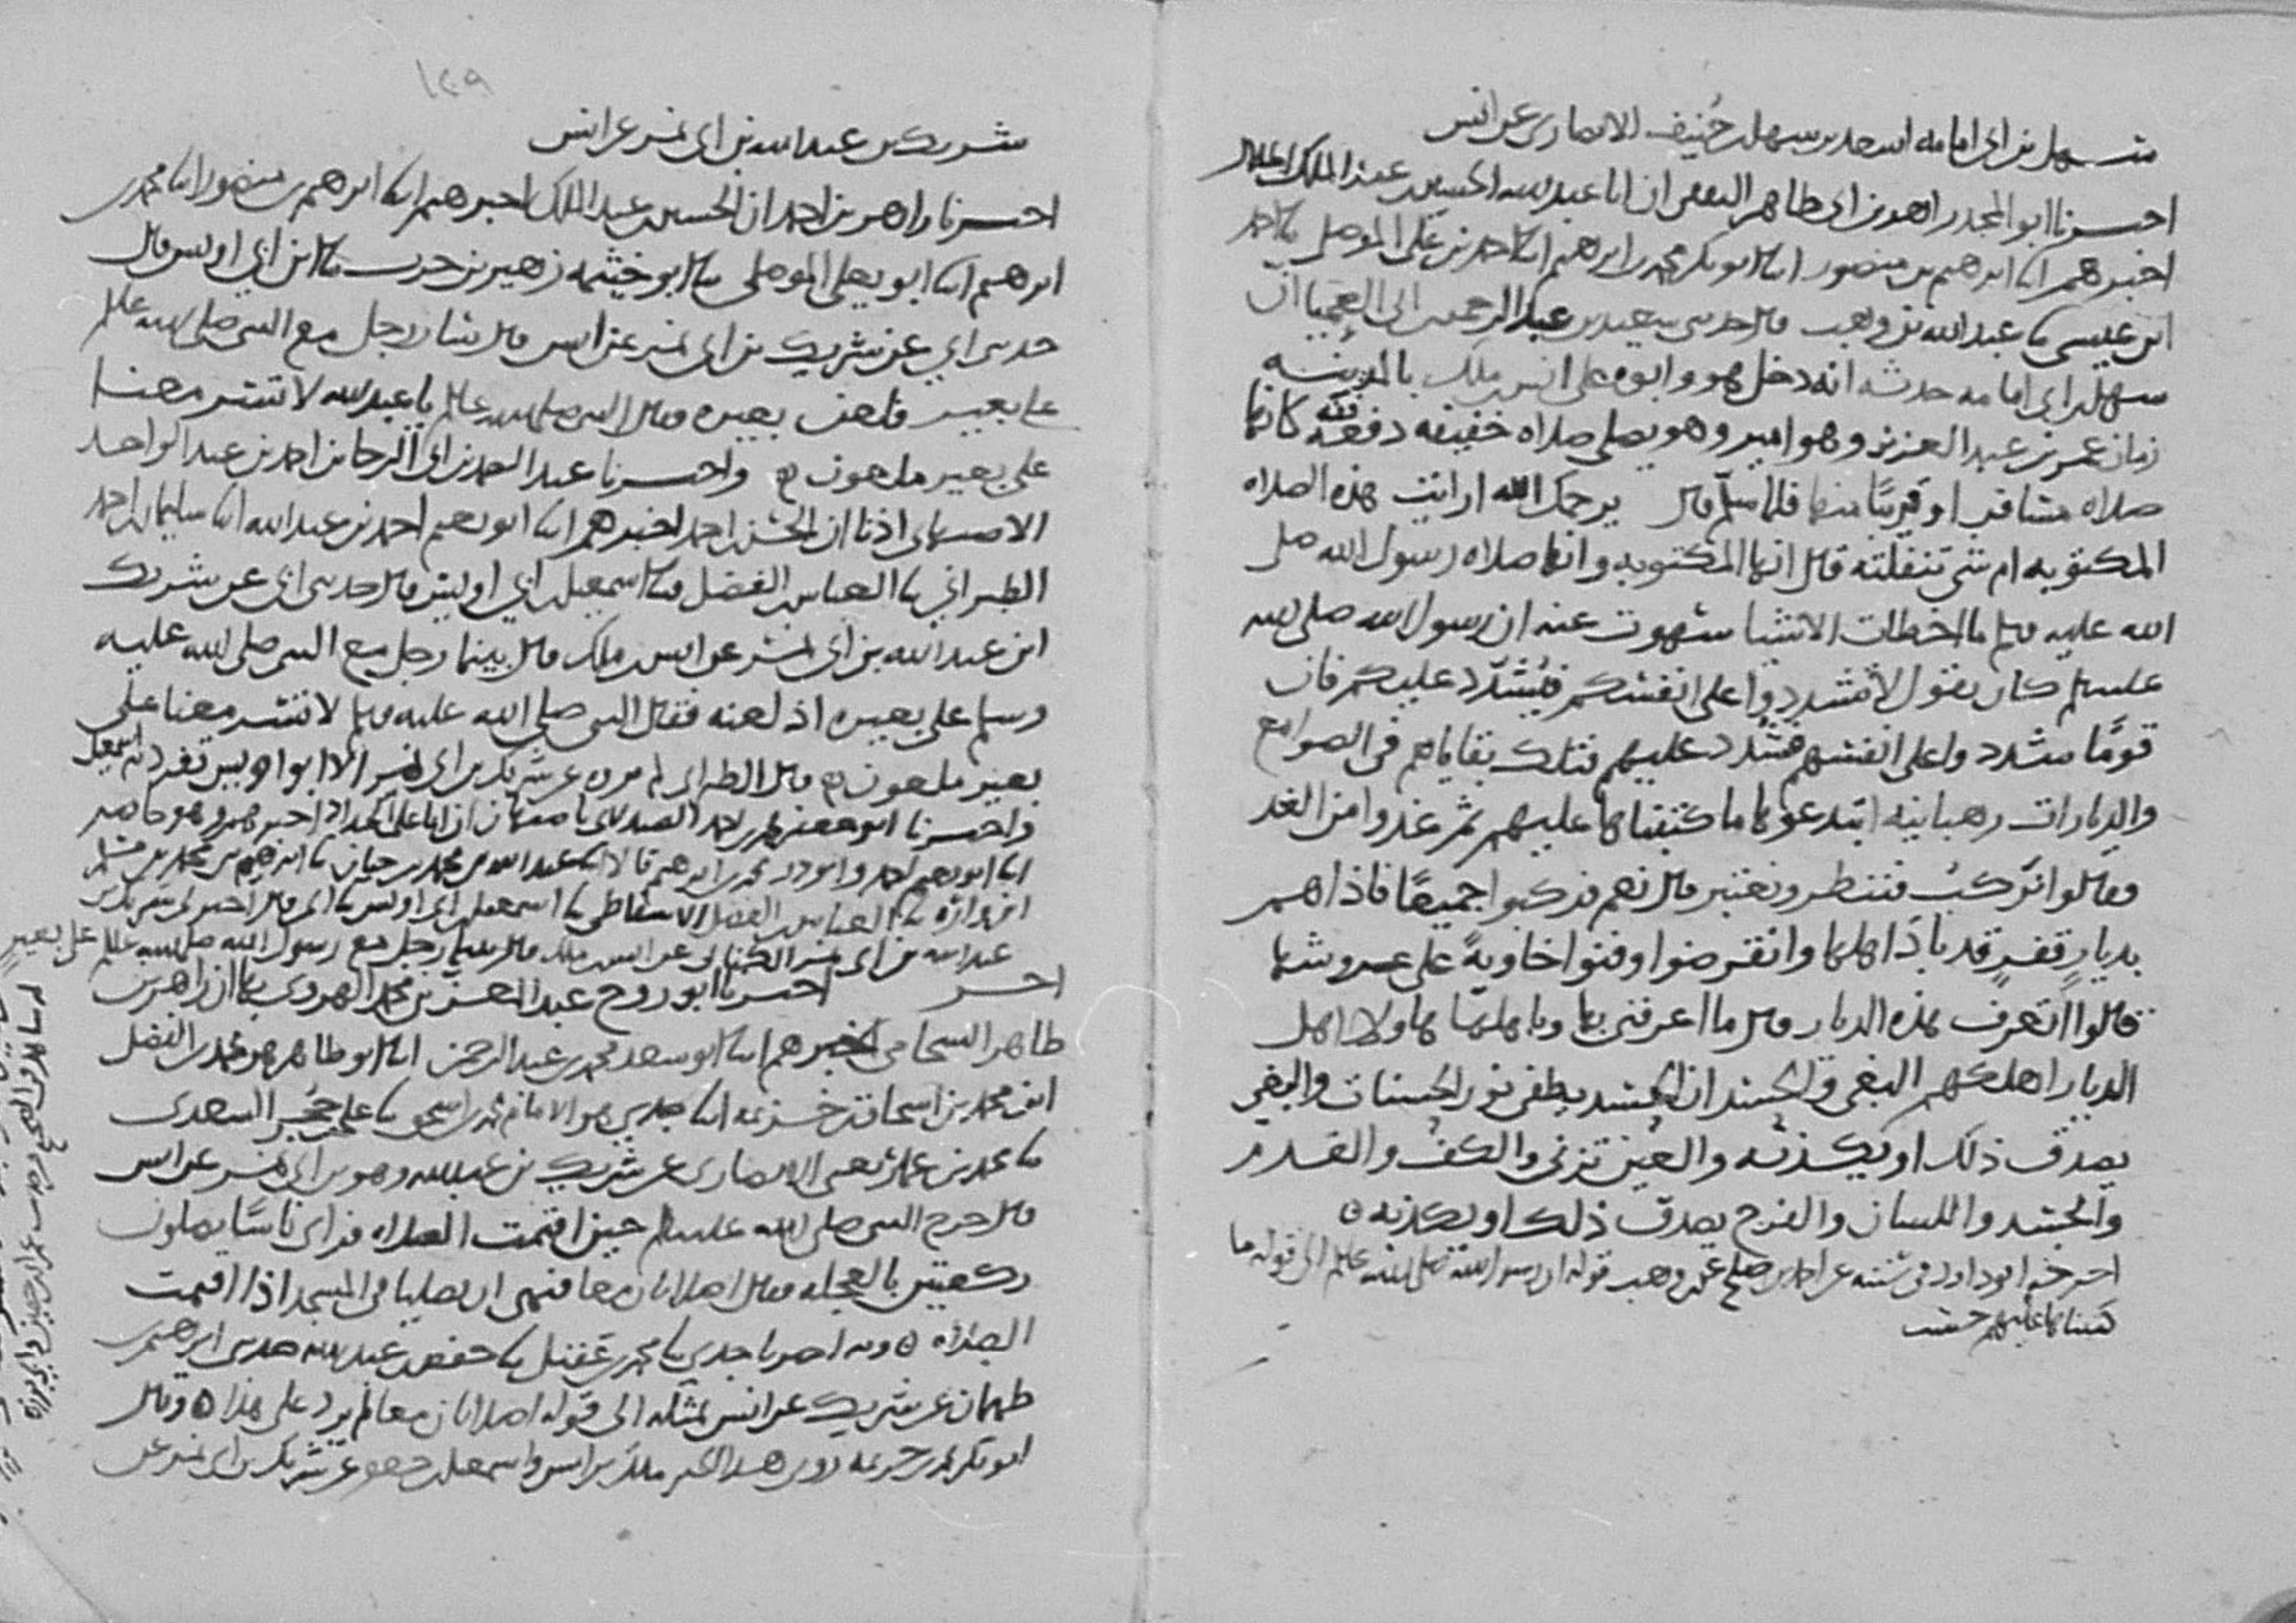 سهل بن ابي امامه اسعد بن سهل بن حُنيف الانصاري عن انس
اخبرنا ابو المجد زاهر بن ابي طاهر الثقفي ان ابا عبد الله الحسين بن عبد الملك الخلال
اخبرهم ابنا ابرهيم بن منصور ابنا ابو بكر محمد بن ابرهيم ابنا احمد بن علي الموصلي ثنا احمد
ابن عيسى ثنا عبد الله بن وهب قال حدثني سعيد بن عبد الرحمن بن ابي العمياء ان
سهل بن ابي امامه حدثه انه دخل هو وابوه على انس بن ملك بالمدينه
زمان عمر بن عبد العزيز وهو امير وهو يصلي صلاه خفيفه دقيقه كانها
صلاه مسافر او قريبًا منها فلما سلّم قال يرحمك الله ارايت هذه الصلاه
المكتوبه ام شي تنفلته قال انها المكتوبه وانها صلاه رسول الله صلى
الله عليه وسلم ما اخطات الا شيا سهوت عنه ان رسول الله صلى الله
عليه وسلم كان يقول لا تشددوا على انفسكم فيُشدّد عليكم فان
قومًا شددوا على انفسهم فشُدد عليهم فتلك بقاياهم في الصوامع
والديارات رهبانيه ابتدعوها ما كتبناها عليهم ثم غدوا من الغد
فقالوا نركب فننظر ونعتبر قال نعم فركبوا جميعًا فاذا هم
بديارٍ قفرٍ قد باد اهلها وانقرضوا وفنوا خاويةً على عروشها
قالوا اتعرف هذه الديار قال ما اعرفني بها وباهلها هاولا اهل
الديار اهلكهم البغي والحسد ان الحسد يطفي نور الحسنات والبغي
يصدق ذلك او يكذبه والعين تزني والكف والقدم
والجسد واللسان والفرج يصدق ذلك او يكذبه
اخرجه ابو داود في سننه عن احمد بن صلح عن ابن وهب قوله ان رسول الله صلى الله عليه وسلم الى قوله ما
كتبناها عليهم حسب
١٤٩
شريك بن عبد الله بن ابي نمر عن انس
اخبرنا زاهر بن احمد ان الحسين بن عبد الملك اخبرهم ابنا ابرهيم بن منصور ابنا محمد بن
ابرهيم ابنا ابو يعلى الموصلي ثنا ابو خيثمه زهير بن حرب ثنا ابن ابي اويس قال
حدثني ابي عن شريك بن ابي نمر عن انس قال سار رجل مع النبي صلى الله عليه وسلم
على بعير فلعن بعيره فقال النبي صلى الله عليه وسلم يا عبد الله لا تسر معنا
على بعير ملعون واخبرنا عبد الصمد بن ابي الرجا بن احمد بن عبد الواحد
الاصبهاني اذنا ان الحسن بن احمد اخبرهم ابنا ابو نعيم احمد بن عبد الله ابنا سليمان بن احمد
الطبراني ثنا العباس بن الفضل ثنا اسمعيل بن ابي اويس قال حدثني ابي عن شريك
ابن عبد الله بن ابي نمر عن انس بن ملك قال بينما رجل مع النبي صلى الله عليه
وسلم على بعيره اذ لعنه فقال النبي صلى الله عليه وسلم لا تسر معنا على
بعير ملعون قال الطبراني لم يروه عن شريك بن ابي نمر الا ابو اويس تفرد به اسمعيل
واخبرنا ابو جعفر محمد بن احمد الصيدلاني باصبهان ان ابا علي الحداد اخبرهم وهو حاضر
ابنا ابو نعيم احمد محمد بن ابرهيم قالا ابنا عبد الله بن محمد بن حيان ثنا ابرهيم بن محمد
ثنا العباس بن الفضل الاسفاطي ثنا اسمعيل بن ابي اويس ثنا ابي قال اخبرني شريك بن
عبد الله بن ابي نمر الكناني عن انس بن ملك قال بينما رجل مع رسول الله صلى الله عليه وسلم على بعير
اخـــر اخبرنا ابو روح عبد المعز بن محمد الهروي بها ان زاهر بن
طاهر الشحامي اخبرهم ابنا ابو سعد محمد بن عبد الرحمن ابنا ابو طاهر هو محمد بن الفضل
ابن محمد بن اسحاق بن خزيمه ابنا جدي هو الامام محمد بن اسحق ثنا علي بن حُجر السعدي
ثنا محمد بن عمار يعني الانصاري عن شريك بن عبد الله وهو بن ابي نمر عن انس
قال خرج النبي صلى الله عليه وسلم حين اقيمت الصلاه فراى ناسًا يصلون
ركعتين بالعجله فقال اصلاتان معا فنهى ان يصليا في المسجد اذا اقيمت
الصلاه وبه اخبرنا جدي ثنا محمد بن عقيل ثنا حفص بن عبد الله حدثني ابرهيم بن
طهمان عن شريك عن انس بمثله الى قوله اصلاتان معا لم يزد على هذا وقال
ابو بكر بن خزيمه روى هذا الخبر ملك بن انس واسمعيل بن جعفر عن شريك بن ابي نمر عن